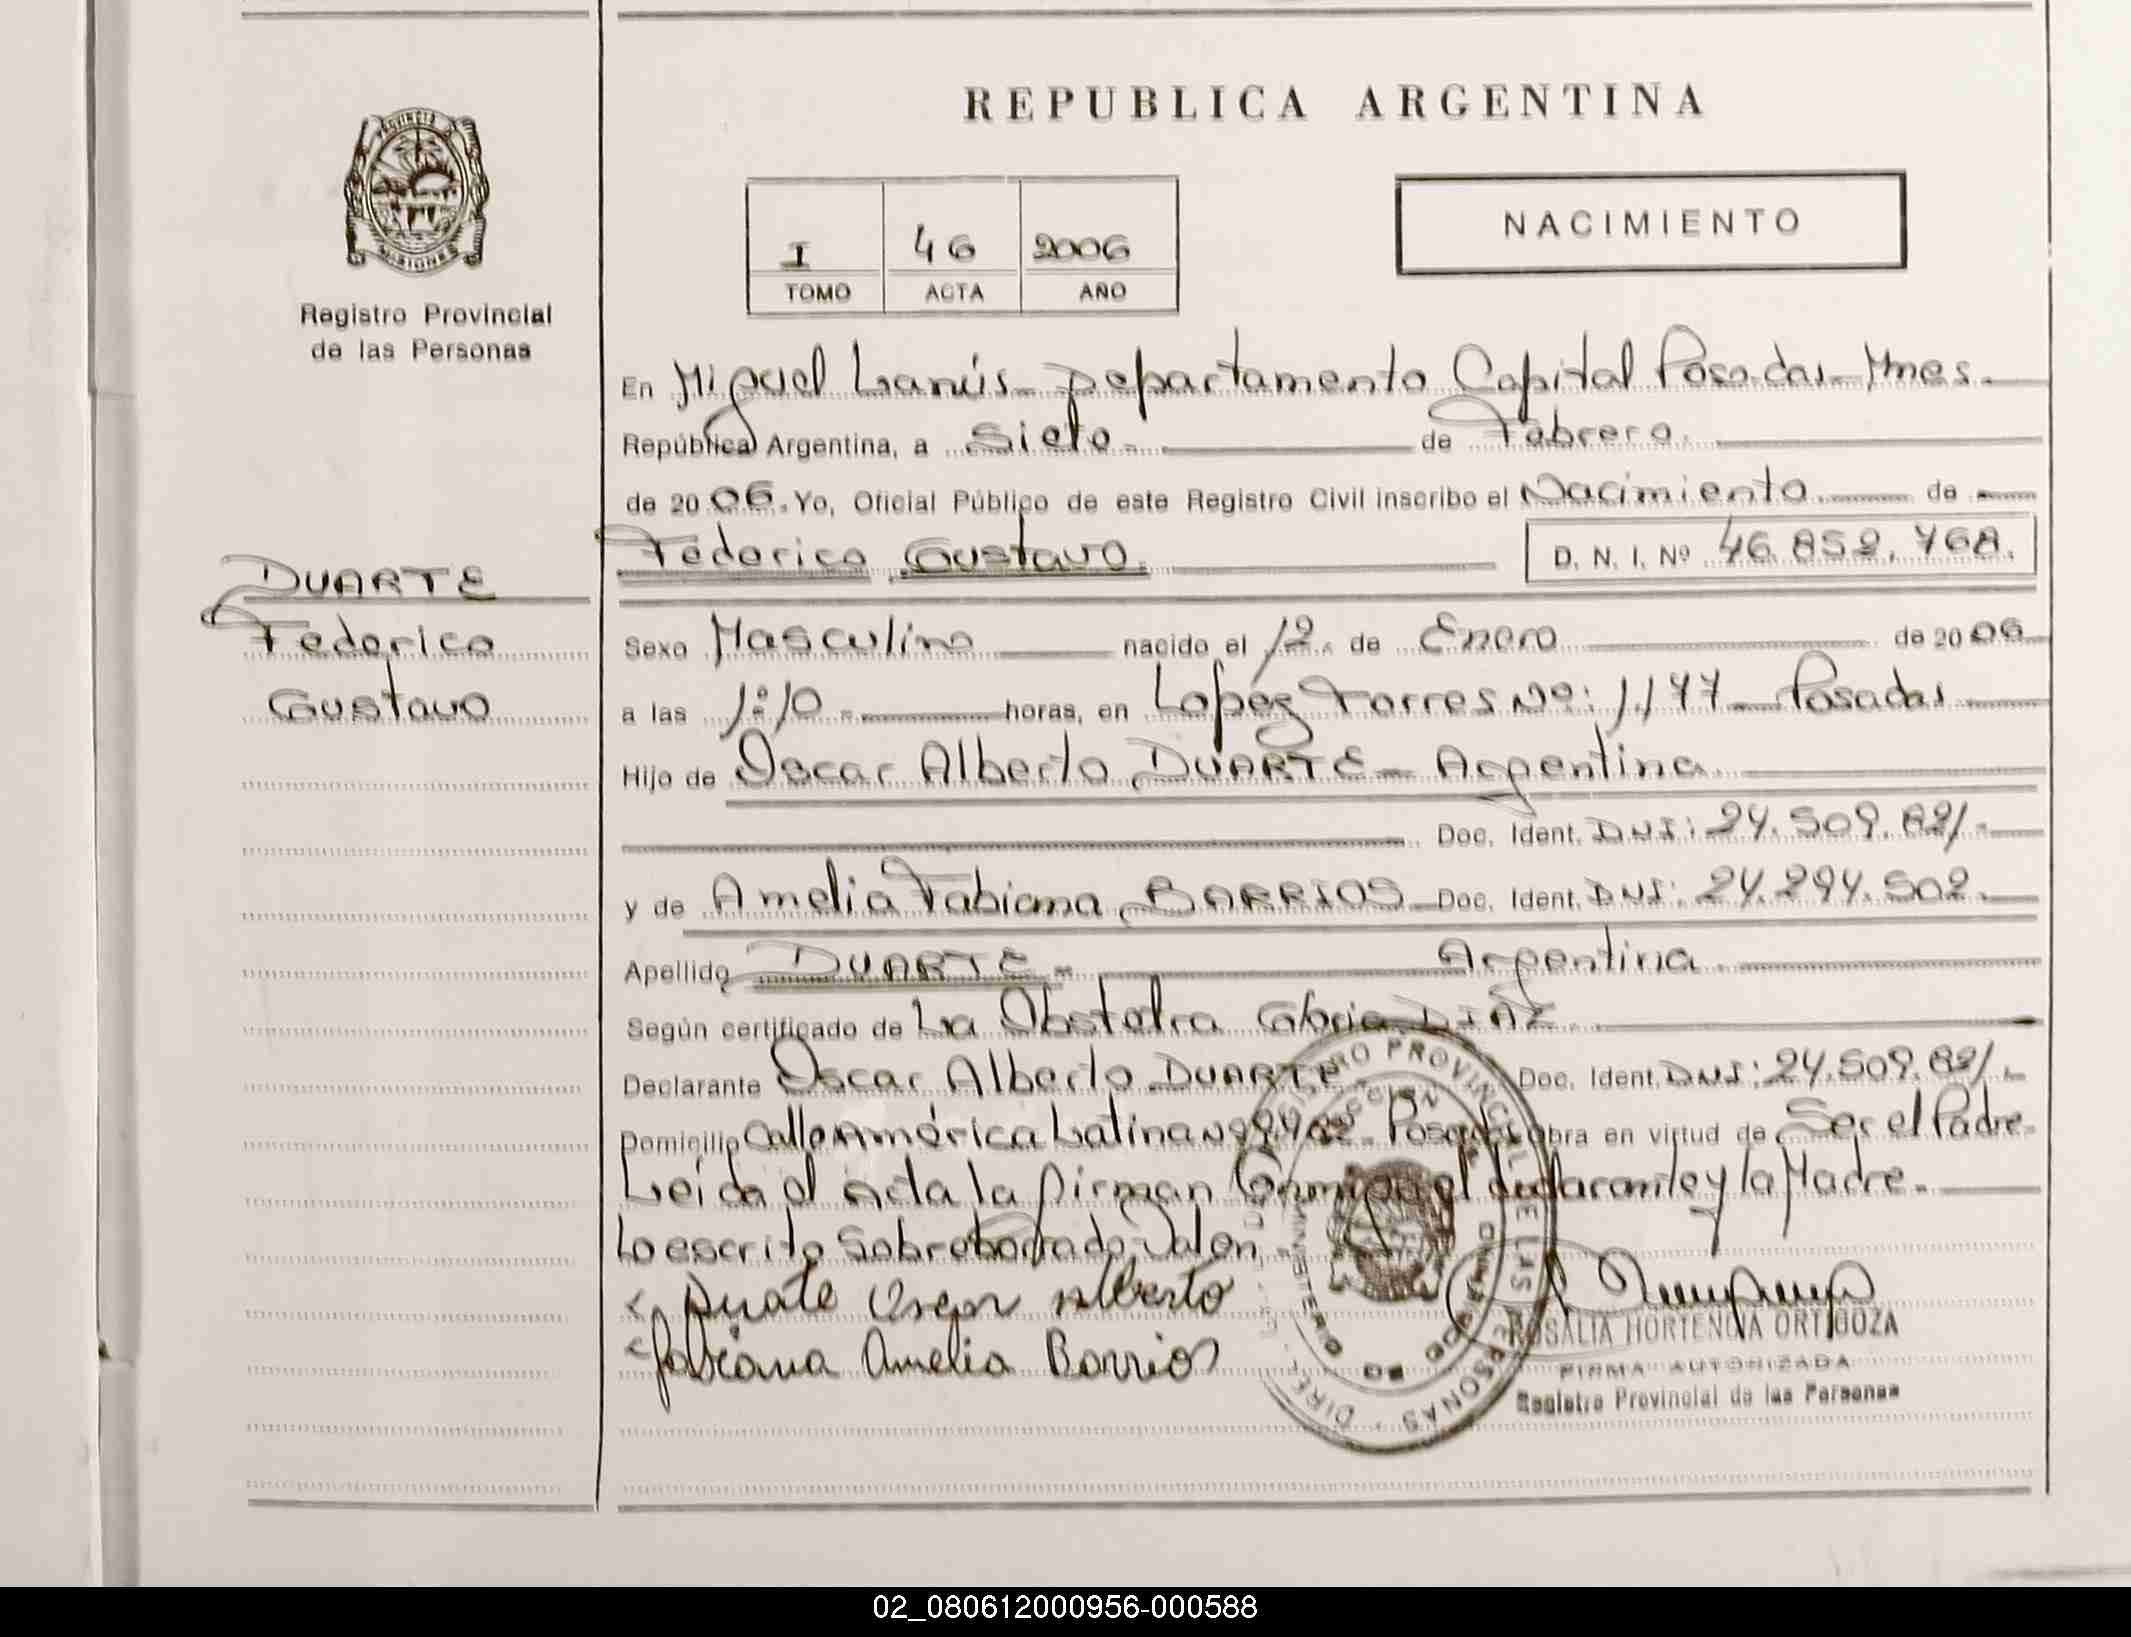 REPUBLICA ARGENTINA
PROVINCIA D
MISIONES
Registro Provincial
de las Personas
NACIMIENTO
I 46 2006
TOMO ACTA AÑO
En Miguel Lanús - Departamento Capital Posadas - Mnes.
República Argentina, a Siete. de Febrero.
de 2006. Yo, Oficial Público de este Registro Civil inscribo el Nacimiento. de
Federico Gustavo. D. N. I. Nº 46.852.768.
DUARTE
Federico
Gustavo
Sexo Masculino nacido el 12. de Enero de 2006
a las 1:10 - horas, en Lopéz Torres Nº: 1.177 - Posadas
Hijo de Oscar Alberto DUARTE - Argentina.
Doc. Ident. DNI: 24.509.821.-
y de Amelia Fabiana BARRIOS Doc. Ident. DNI: 24.294.502.
Apellido DUARTE - Argentina.
Según certificado de La Obstetra Gloria DIAZ.
Declarante Oscar Alberto DUARTE. Doc. Ident. DNI: 24.509.821.-
Domicilio Calle América Latina Posadas Obra en virtud de Ser el Padre.
Leída el Acta la firman Conmigo el declarante y la Madre.
Lo escrito Sobreborrado: Valen
Duate Oscar Alberto
Fabiana Amelia Barrios
ROSALIA HORTENCIA ORTIGOZA
FIRMA AUTORIZADA
Registro Provincial de las Personas
02_080612000956-000588